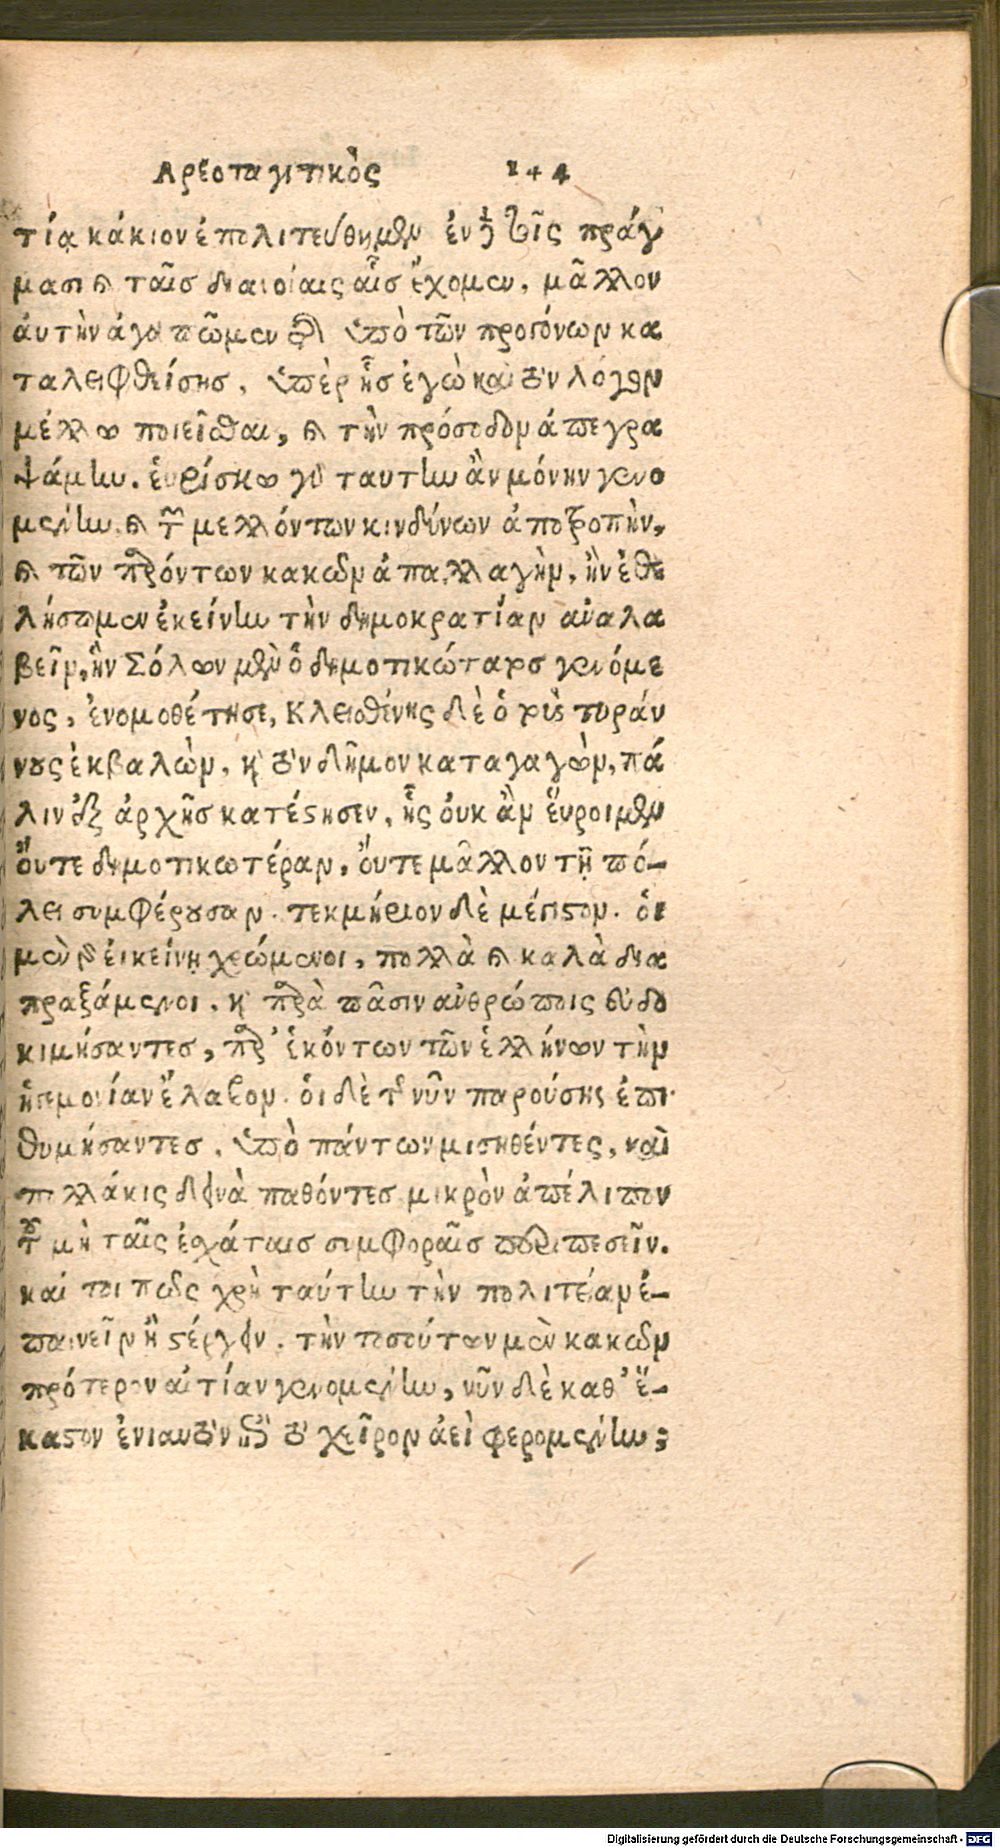 Αρεοπαγιτικὸς 244
τίᾳ κάκιον ἐπολιτεύθημεν ἐν ἢ τοῖς πράγ
μασι καὶ ταῖσ διανοίαις αἷσ ἔχομεν, μᾶλλον
ἀυτὴν ἀγαπῶμεν τῆς ὑπὸ τῶν προγόνων κα
ταλειφθείσησ, ὑπὲρ ἧσ ἐγὼ καὶ τὸν λόγον
μέλλω ποιεῖσθαι, καὶ τὴν πρόσοδον ἀπεγρα
ψάμην. ἑυρίσκω γὰρ ταυτην ἂν μόνην γενο
μένην καὶ τῶν μελλόντων κινδύνων ἀποτροπὴν,
καὶ τῶν παρόντων κακῶν ἀπαλλαγὴν, ἢν ἐθε
λήσωμεν ἐκείνην τὴν δημοκρατίαν αναλα
βεῖν, ἣν Σόλων μὲν ὁ δημοτικώτατοσ γενόμε
νος, ἐνομοθέτησε, Κλεισθένης δὲ ὁ τοὺς τυράν
νους ἐκβαλὼν, καὶ τὸν δῆμον καταγαγὼν, πά
λιν ἐξ ἀρχῆσ κατέστησεν, ἧς ὀυκ ἂν ἕυροιμεν
ὄυτε δημοτικωτέραν, ὄυτε μᾶλλον τῇ πό-
λει συμφέρουσαν. τεκμήριον δὲ μέγιστον. ὁι
μὲν γὰρ ἐκείνῃ χρώμενοι, πολλὰ καὶ καλὰ δια
πραξάμενοι, καὶ παρὰ πᾶσιν ανθρώποις ευδο
κιμήσαντεσ, παρ' ἑκόντων τῶν ἑλλήνων τὴν
ἡγεμονίαν ἔλαβον. ὁι δὲ τῆς νῦν παρούσης ἐπι
θυμήσαντεσ, ὑπὸ πάντων μισηθέντες, καὶ
πολλάκις δεινὰ παθόντεσ μικρὸν ἀπέλιπον
τοῦ μὴ ταῖς ἐσχάταισ συμφοραῖσ περιπεσεῖν.
καί τοι πῶς χρὴ ταύτην τὴν πολιτείαν ἐ-
παινεῖν ἢ στέργειν. τὴν τοσούτων μὲν κακῶν
πρότερον αἰτίαν γενομένην, νῦν δὲ καθ' ἕ-
καστον ἐνιαυτὸν ἐπὶ τὸ χεῖρον ἀεὶ φερομένην;
Digitalisierung gefördert durch die Deutsche Forschungsgemeinschaft - DFG